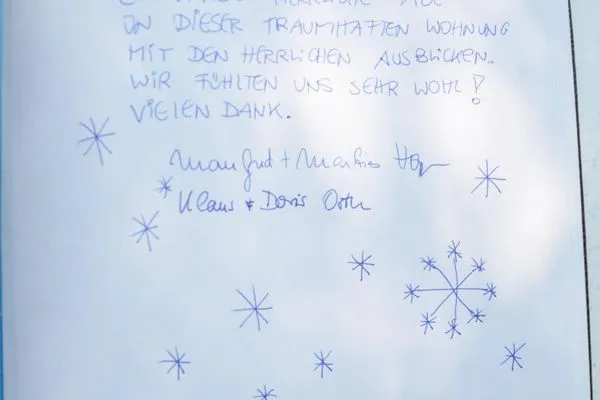 IN DIESER TRAUMHAFTEN WOHNUNG
MIT DEN HERRLICHEN AUSBLICKEN.
WIR FÜHLTEN UNS SEHR WOHL!
VIELEN DANK.
Manfred +
Klaus + Doris